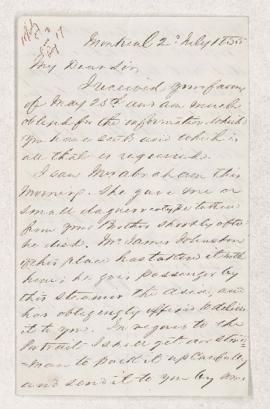 Montreal 2d July 185
My Dear Sir
I received your favor
of May 23d & am much
obliged for the information which
you have sent and which is
all that is required.
I saw Mrs Abraham this
morning. She gave me a
small daguerreotype taken
from your Brother shortly after
he died. Mr James Johnston
of this place has taken it with
him; he goes passenger by
this steamer the and
has obligingly offered to deliver
it to you. In regard to the
Portrait I shall get our
man to pack it up carefully
and send it to you by some